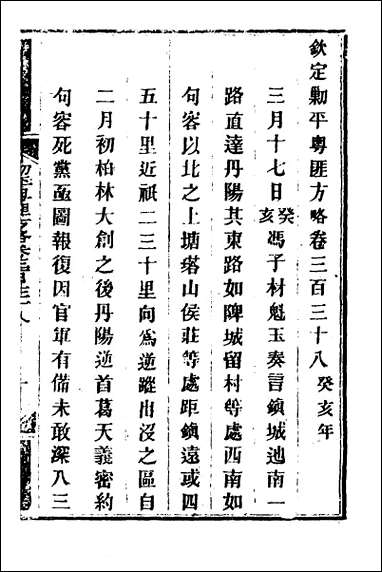 欽定剿平粵匪方略卷三百三十八癸亥年
三月十七日癸亥馮子材魁玉奏言鎮城迤南一
路直達丹陽其東路如陴城留村等處西南如
句容以北之上塘塔山侯莊等處距鎮遠或四
五十里近祇二三十里向為逆蹤出沒之區自
二月初柏林大創之後丹陽逆首葛天義密約
句容死黨亟圖報復因官軍有備未敢深入三